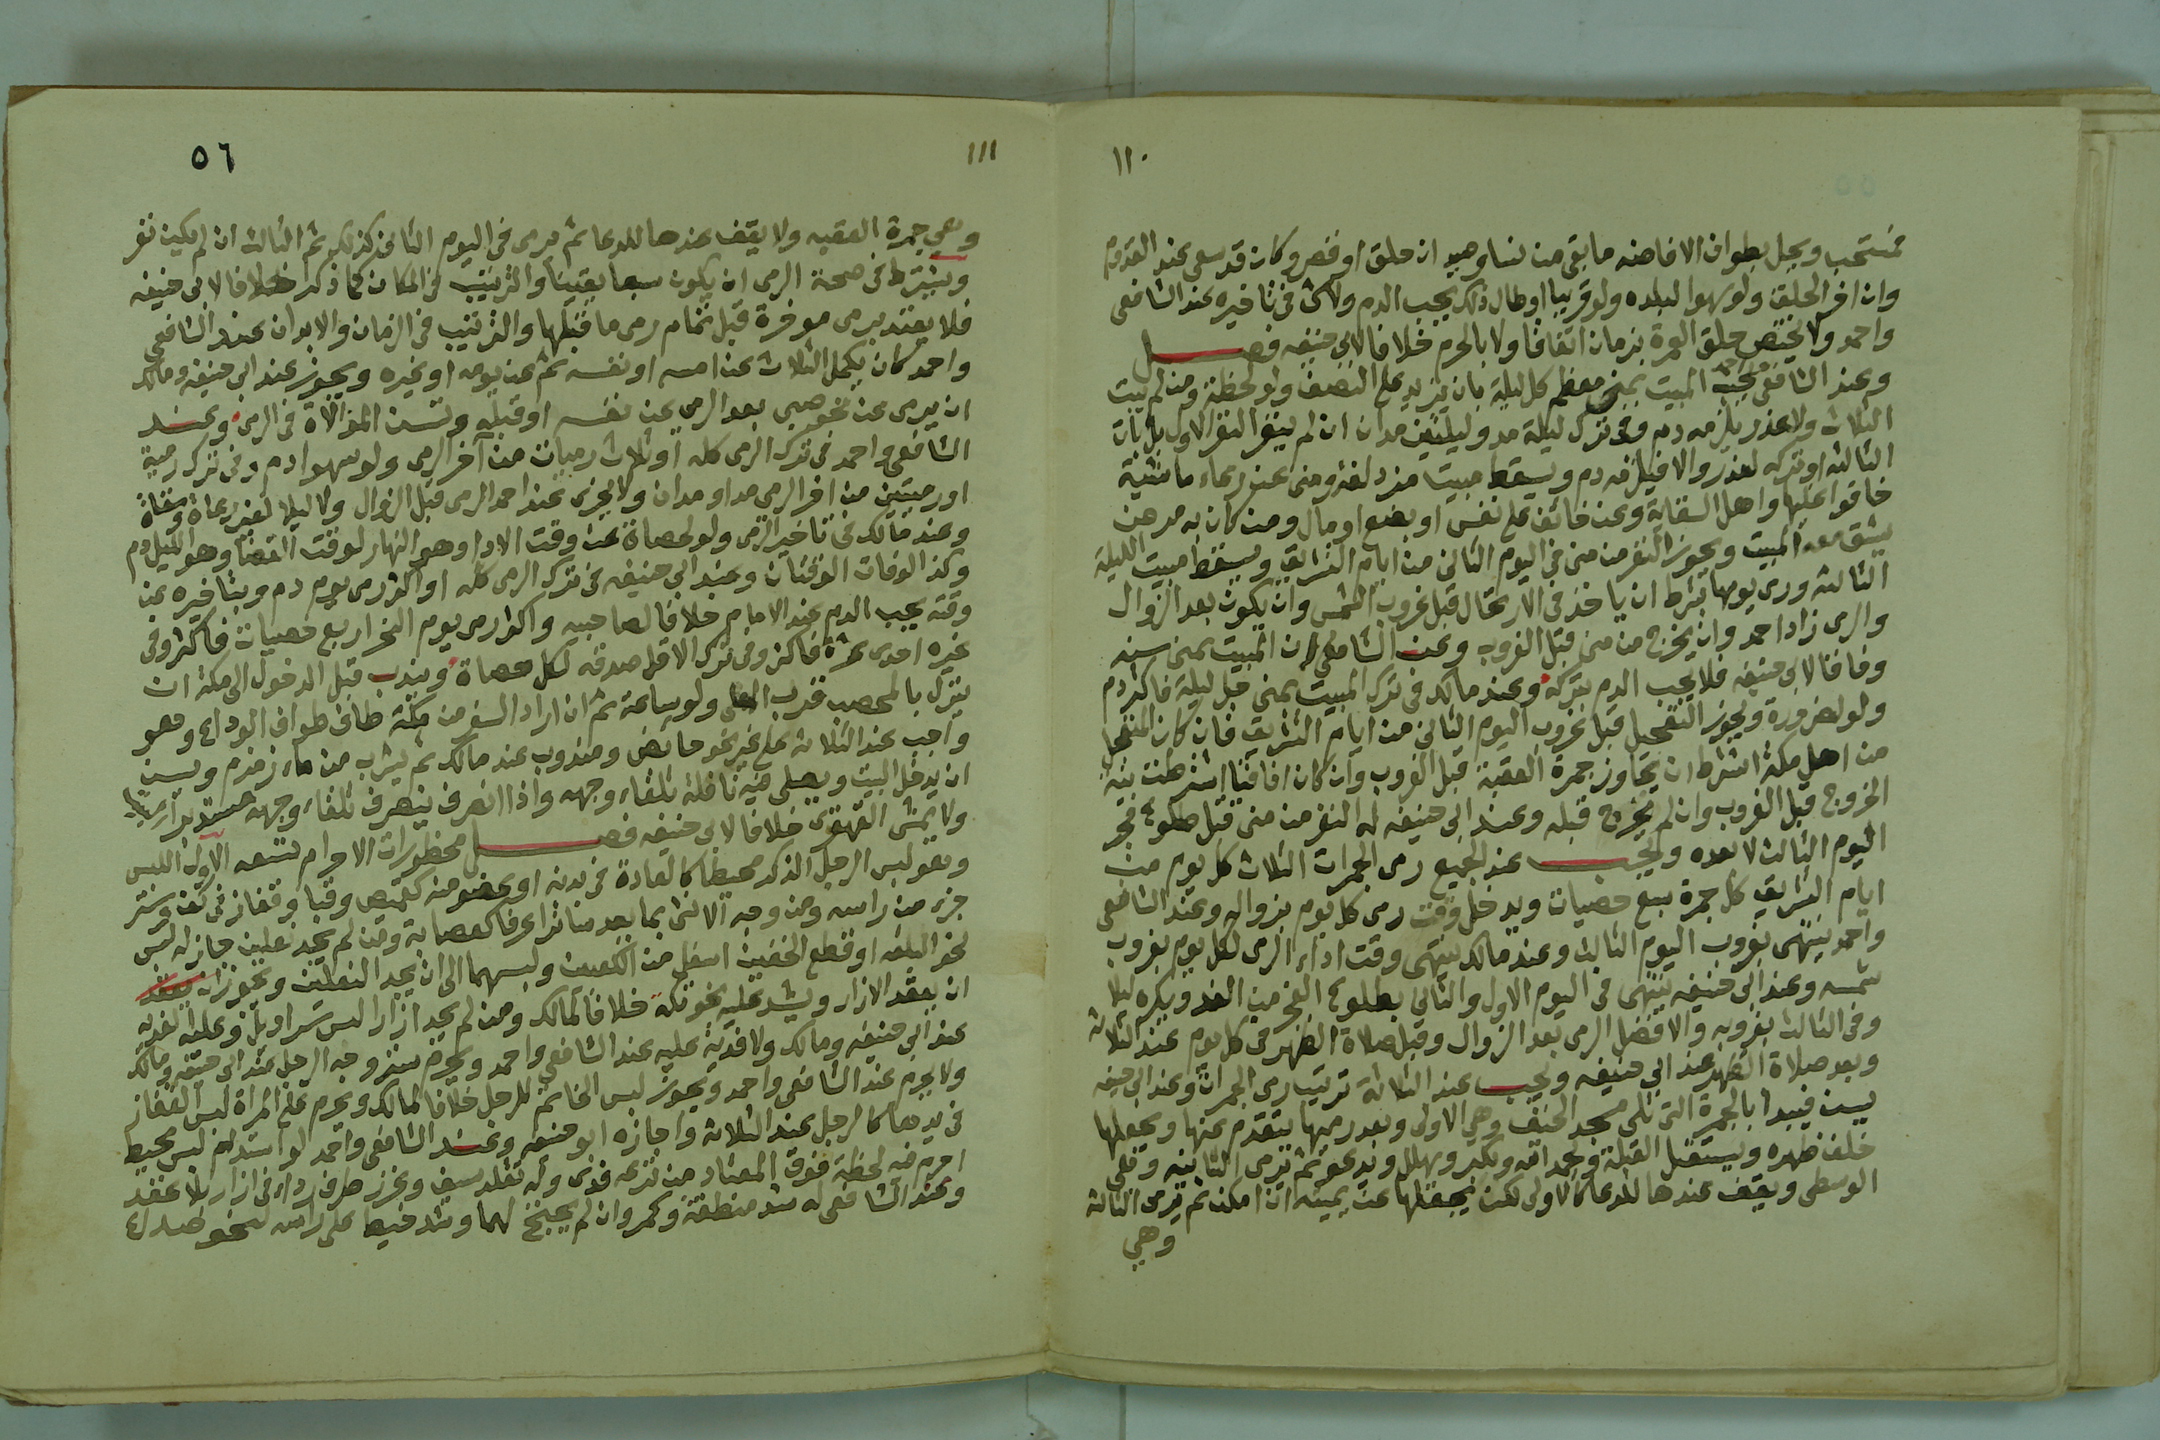 ١١٠
فمستحب ويحل بطواف الافاضه ما بقى من نسا وصيد ان حلق او قصر وكان قد سعى عند القدوم
وان اخر الحلق ولو سهوا لبلده ولو قريبا او طال ذلك يجب الدم ولا شى فى تاخيره عند الشافعى
واحمد ولا يختص حلق العمرة بزمان اتفاقا ولا بالحرم خلافا لابى حنيفه فصل
وعند الشافعى يجب المبيت بمنى معظم كل ليلة بان يزيد على النصف ولو لحظة ومن لم يبت
الثلاث ولا عذر يلزمه دم وفى ترك ليلة مد وليلتين مدان ان لم ينفر النفر الاول بل بات
الثالثه او تركه لعذر والا فيلزمه دم ويسقط مبيت مزدلفة ومنى عن رعاء ماشية
خافوا عليها واهل السقاية وعن خائف على نفس او بضع او مال ومن كان به مرض
يشق معه المبيت ويجوز النفر من منى فى اليوم الثانى من ايام التشريق ويسقط مبيت الليلة
الثالثة ورمى يومها بشرط ان ياخذ فى الارتحال قبل غروب الشمس وان يكون بعد الزوال
والرمى زاد احمد وان يخرج من منى قبل الغروب وعن الشافعى ان المبيت بمنى سنه
وفاقا لابى حنيفه فلا يجب الدم بتركه وعند مالك فى ترك المبيت بمنى جل ليلة فاكثر دم
ولو لضرورة ويجوز التعجيل قبل غروب اليوم الثانى من ايام التشريق فان كان المتعجل
من اهل مكة اشترط ان يجاوز جمرة العقبة قبل الغروب وان كان افاقيا اشترطت نية
الخروج قبل الغروب وان لم يخرج قبله وعند ابى حنيفه له النفر من منى قبل طلوع فجر
اليوم الثالث لا بعده ويجب عند الجميع رمى الجمرات الثلاث كل يوم من
ايام التشريق كل جمرة سبع حصيات ويدخل وقت رمى كل يوم بزواله وعند الشافعى
واحمد ينتهى بغروب اليوم الثالث وعند مالك ينتهى وقت اداء الرمى لكل يوم بغروب
شمسه وعند ابى حنيفه ينتهى فى اليوم الاول والثانى بطلوع الفجر من الغد ويكره ليلا
وفى الثالث بغروبه والافضل الرمى بعد الزوال وقبل صلاة الظهر فى كل يوم عند الثلاثه
وبعد صلاة الظهر عند ابى حنيفه ويجب عند الثلاثة ترتيب رمى الجمرات وعند ابى حنيفه
يسن فيبدا بالجمرة التى تلى مسجد الخيف وهى الاولى وبعد رميها يتقدم عنها ويجعلها
خلف ظهره ويستقبل القبلة ويحمد الله ويكبر ويهلل ويدعو ثم يرمى الثانيه وهى
الوسطى ويقف عندها للدعا كالاولى لكن يجعلها عن يمينه ان امكن ثم يرمى الثالثة
وهي
١١١
٥٦
وهي جمرة العقبه ولا يقف عندها للدعا ثم يرمى فى اليوم الثانى كذلك ثم الثالث ان لم يكن نفر
ويشترط فى صحة الرمى ان يكون سبعا يقينا والترتيب فى المكان كما ذكر خلافا لابى حنيفه
فلا يعتد برمى موخرة قبل تمام رمى ما قبلها والترتيب فى الزمان والابدان عند الشافعى
واحمد كان يكمل الثلاث عن امسه او نفسه ثم عن يومه او غيره ويجوز عند ابى حنيفه ومالك
ان يرمى عن نحو صبى بعد الرمى عن نفسه او قبله وتسن الموالاة فى الرمى وعند
الشافعى واحمد فى ترك الرمى كله او ثلاث رميات من آخر الرمى ولو سهوا دم وفى ترك رمية
او رميتين من اخر الرمى مد او مدان ولا يجزى عند احمد الرمى قبل الزوال ولا ليلا لغير رعاة وسقاة
وعند مالك فى تاخير الرمى ولو لحصاة عن وقت الادا وهو النهار لوقت القضا وهو الليل دم
وكذا لو فات الوقتان وعند ابى حنيفه فى ترك الرمى كله او اكثر رمى يوم دم وبتاخيره عن
وقته يجب الدم عند الامام خلافا لصاحبيه واكثر رمى يوم النحر اربع حصيات فاكثر وفى
غيره احدى عشرة فاكثر وفى ترك الاقل صدقه لكل حصاة ويندب قبل الدخول الى مكة ان
ينزل بالمحصب قدر ولو ساعة ثم ان اراد السفر من مكة طاف طواف الوداع وهو
واجب عند الثلاثة على غير نحو حائض ومندوب عند مالك ثم يشرب من ماء زمزم ويسن
ان يدخل البيت ويصلى فيه نافلة تلقاء وجهه واذا انصرف ينصرف تلقاء وجهه مستدبرا للبيت
ولا يمشى القهقرى خلافا لابى حنيفه فصل محظورات الاحرام تسعه الاول اللبس
وهو لبس الرجل الذكر محيطا كالعادة فى بدنه او عضو منه كقميص وقبا وقفاز فى كف وستر
جزء من راسه ومن وجه الانثى بما يعد ساترا عرفا كعصابة ومن لم يجد نعلين جاز له لبس
نحو البلغه او قطع الخفين اسفل من الكعبين ولبسهما الى ان يجد النعلين ويجوز ان يعقد
ان يعقد الازار ويشد عليه نحو تكة خلافا لمالك ومن لم يجد ازارا لبس سراويل وعليه الفدية
عند ابى حنيفه ومالك ولا فدية عليه عند الشافعى واحمد ويحرم ستر وجه الرجل عند ابى حنيفه ومالك
ولا يحرم عند الشافعى واحمد ويجوز لبس الخاتم للرجل خلافا لمالك ويحرم على المراة لبس القفاز
فى يديها كالرجل عند الثلاثة واجازه ابو حنيفه وعند الشافعى واحمد لو استدام لبس محيط
احرم فيه لحظة فوق المعتاد من نزعه فدى وله تقلد سيف وغرز طرفى رداء فى ازار بلا عقد
وعند الشافعى له شد منطقة وكمر وان لم يحتج لهما وشد خيط على راسه لنحو صداع